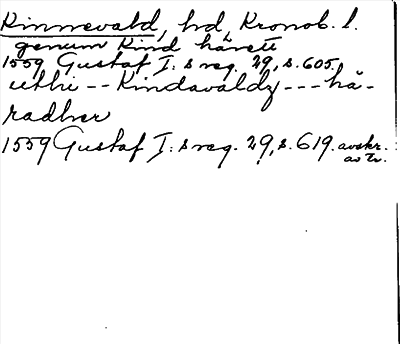 Kinnevald, hd, Kronob. l.
genum Kind härett
1559 Gustaf I: s reg. 29, s. 605.
uthi -- Kindavaldz --- hä-
radher
1559 Gustaf I: s reg. 29, s. 619. avskr.
av tr.